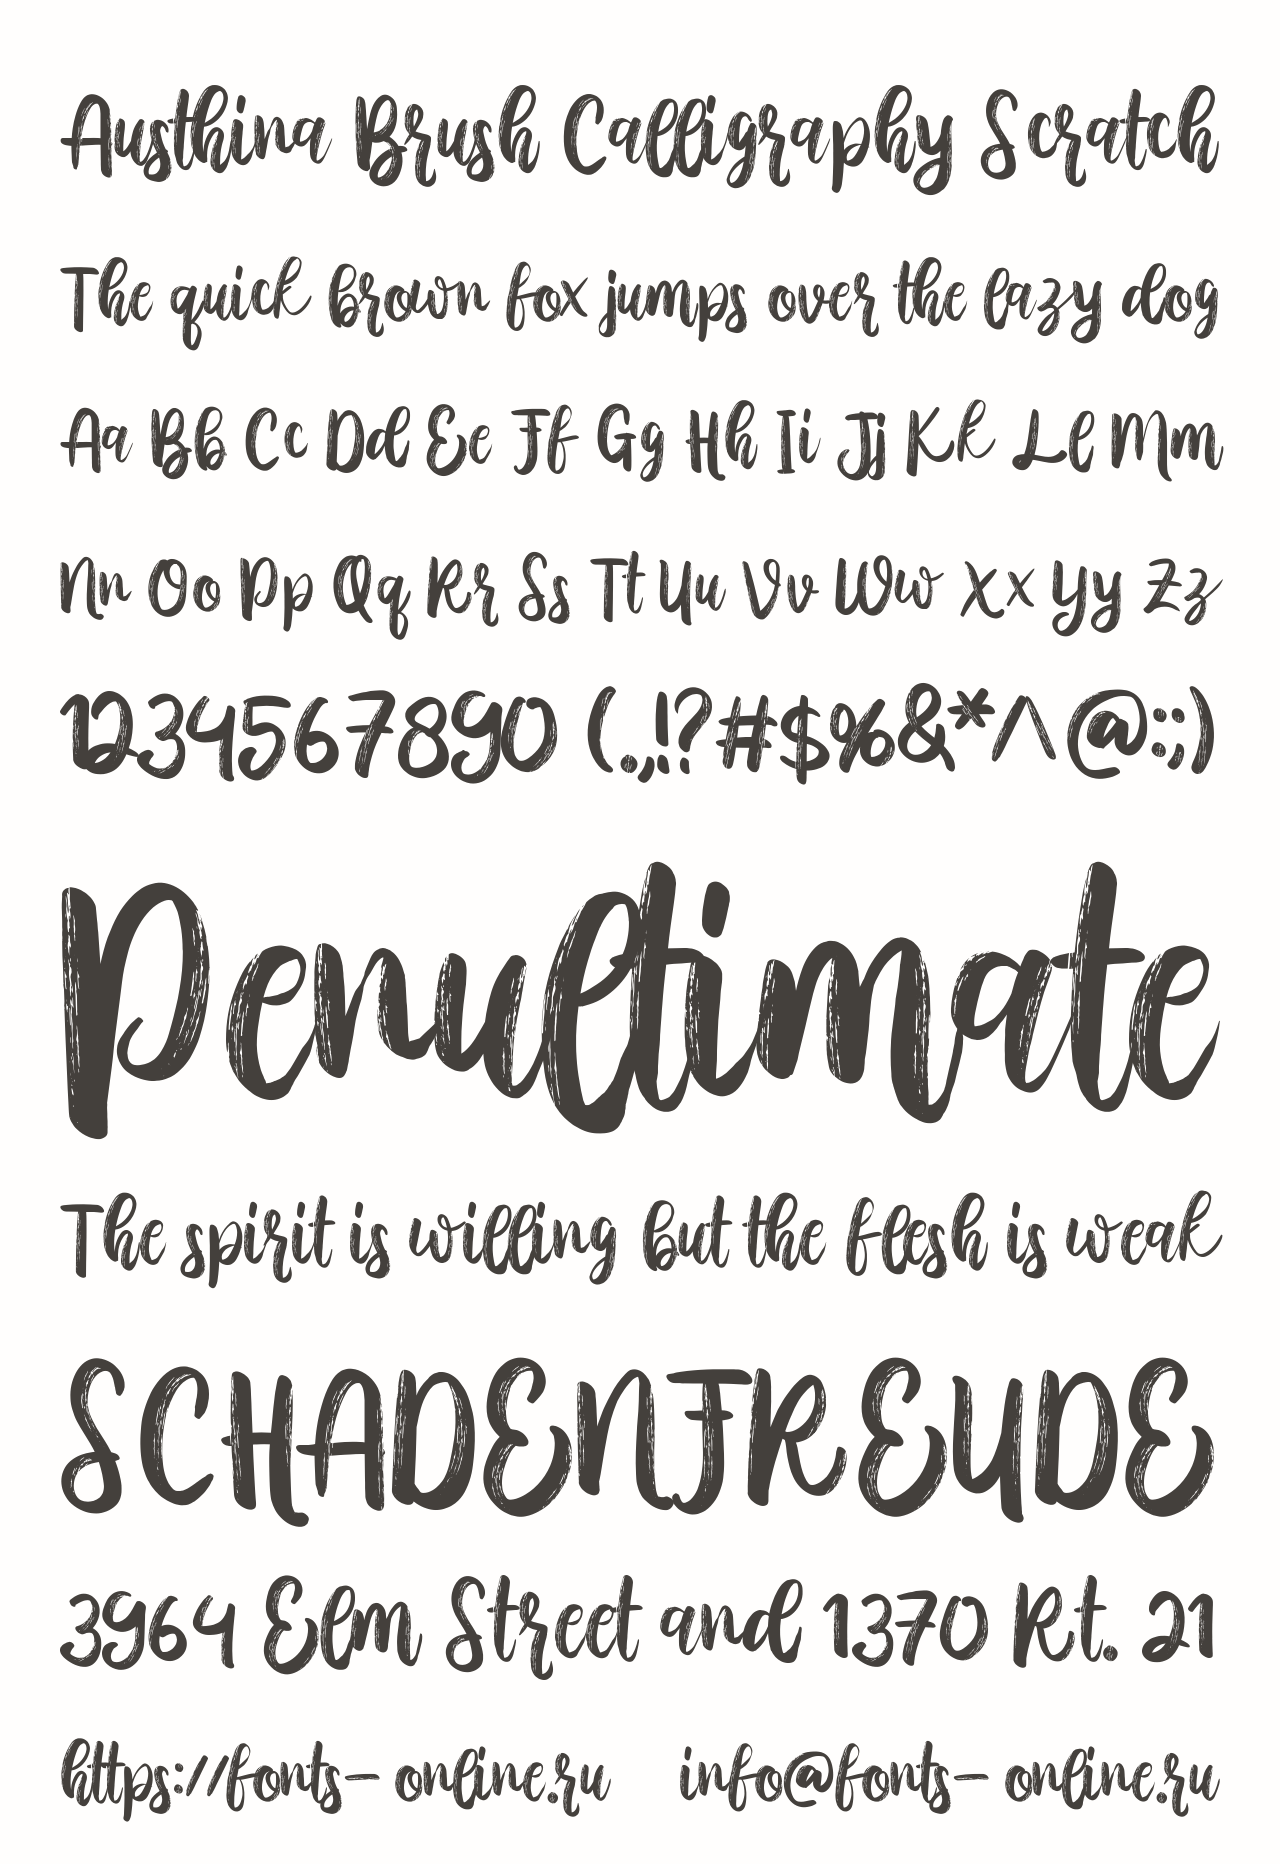 Austhina Brush Calligraphy Scratch
The quick brown fox jumps over the lazy dog
Aa Bb Cc Dd Ee Ff Gg Hh Ii Jj Kk Ll Mm
Nn Oo Pp Qq Rr Ss Tt Uu Vv Ww Xx Yy Zz
1234567890 (.,!?#$%&*^@:;)
Penultimate
The spirit is willing but the flesh is weak
SCHADENFREUDE
3964 Elm Street and 1370 Rt. 21
https://fonts-online.ru info@fonts-online.ru